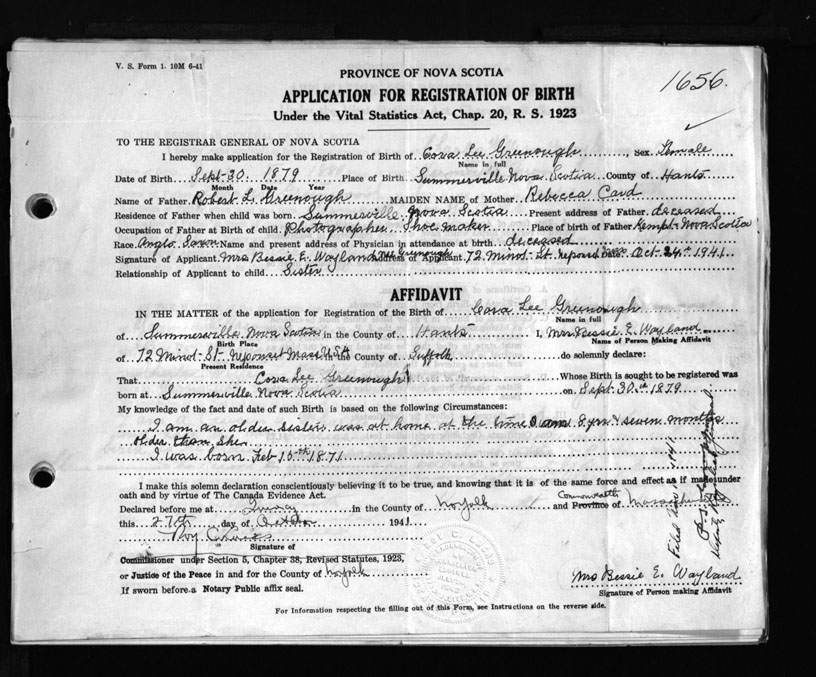 V. S. Form 1. 10M 6-41
1656.
PROVINCE OF NOVA SCOTIA
APPLICATION FOR REGISTRATION OF BIRTH
Under the Vital Statistics Act, Chap. 20, R. S. 1923
TO THE REGISTRAR GENERAL OF NOVA SCOTIA
I hereby make application for the Registration of Birth of Cova Lee Greenough, Sex Female
Name in full
Date of Birth Sept-30 1879 Place of Birth Summerville Nova Scotia County of Hants
Month Date Year
Name of Father Robert L. Greenough MAIDEN NAME of Mother Rebecca Card
Residence of Father when child was born Summerville Nova Scotia Present address of Father deceased
Occupation of Father at Birth of child Photographer Shoe maker Place of birth of Father Kempt-Nova Scotia
Race Anglo Saxon Name and present address of Physician in attendance at birth deceased
Signature of Applicant Mrs Bessie E. Wayland Address of Applicant 72 Minot-St. Neponset Mass Date Oct-24th 1941
Relationship of Applicant to child Sister
AFFIDAVIT
IN THE MATTER of the application for Registration of the Birth of Cova Lee Greenough
Name in full
of Summerville Nova Scotia in the County of Hants I, Mrs Bessie E. Wayland
Birth Place Name of Person Making Affidavit
of 72 Minot-St-Neponset Mass USA in the County of Suffolk do solemnly declare:
Present Residence
That Cova Lee Greenough Whose Birth is sought to be registered was
born at Summerville Nova Scotia on Sept 30th 1879
My knowledge of the fact and date of such Birth is based on the following Circumstances:
I am an older sister was at home at the time I am 8 yrs & seven months
older than she.
I was born Feb 15th 1871
I make this solemn declaration conscientiously believing it to be true, and knowing that it is of the same force and effect as if made under
oath and by virtue of The Canada Evidence Act.
Declared before me at Quincy in the County of Norfolk and Commonwealth Province of Massachusetts
this 27th day of October 1941
Signature of
Commissioner under Section 5, Chapter 38, Revised Statutes, 1923,
or Justice of the Peace in and for the County of Norfolk
If sworn before a Notary Public affix seal.
Mrs Bessie E. Wayland
Signature of Person making Affidavit
For Information respecting the filling out of this Form, see Instructions on the reverse side.
Filed
1941